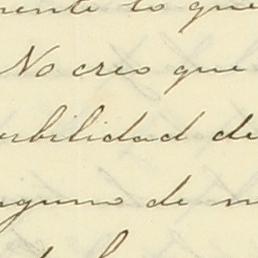 mente lo que
No creo que
sibilidad de
nguno de m